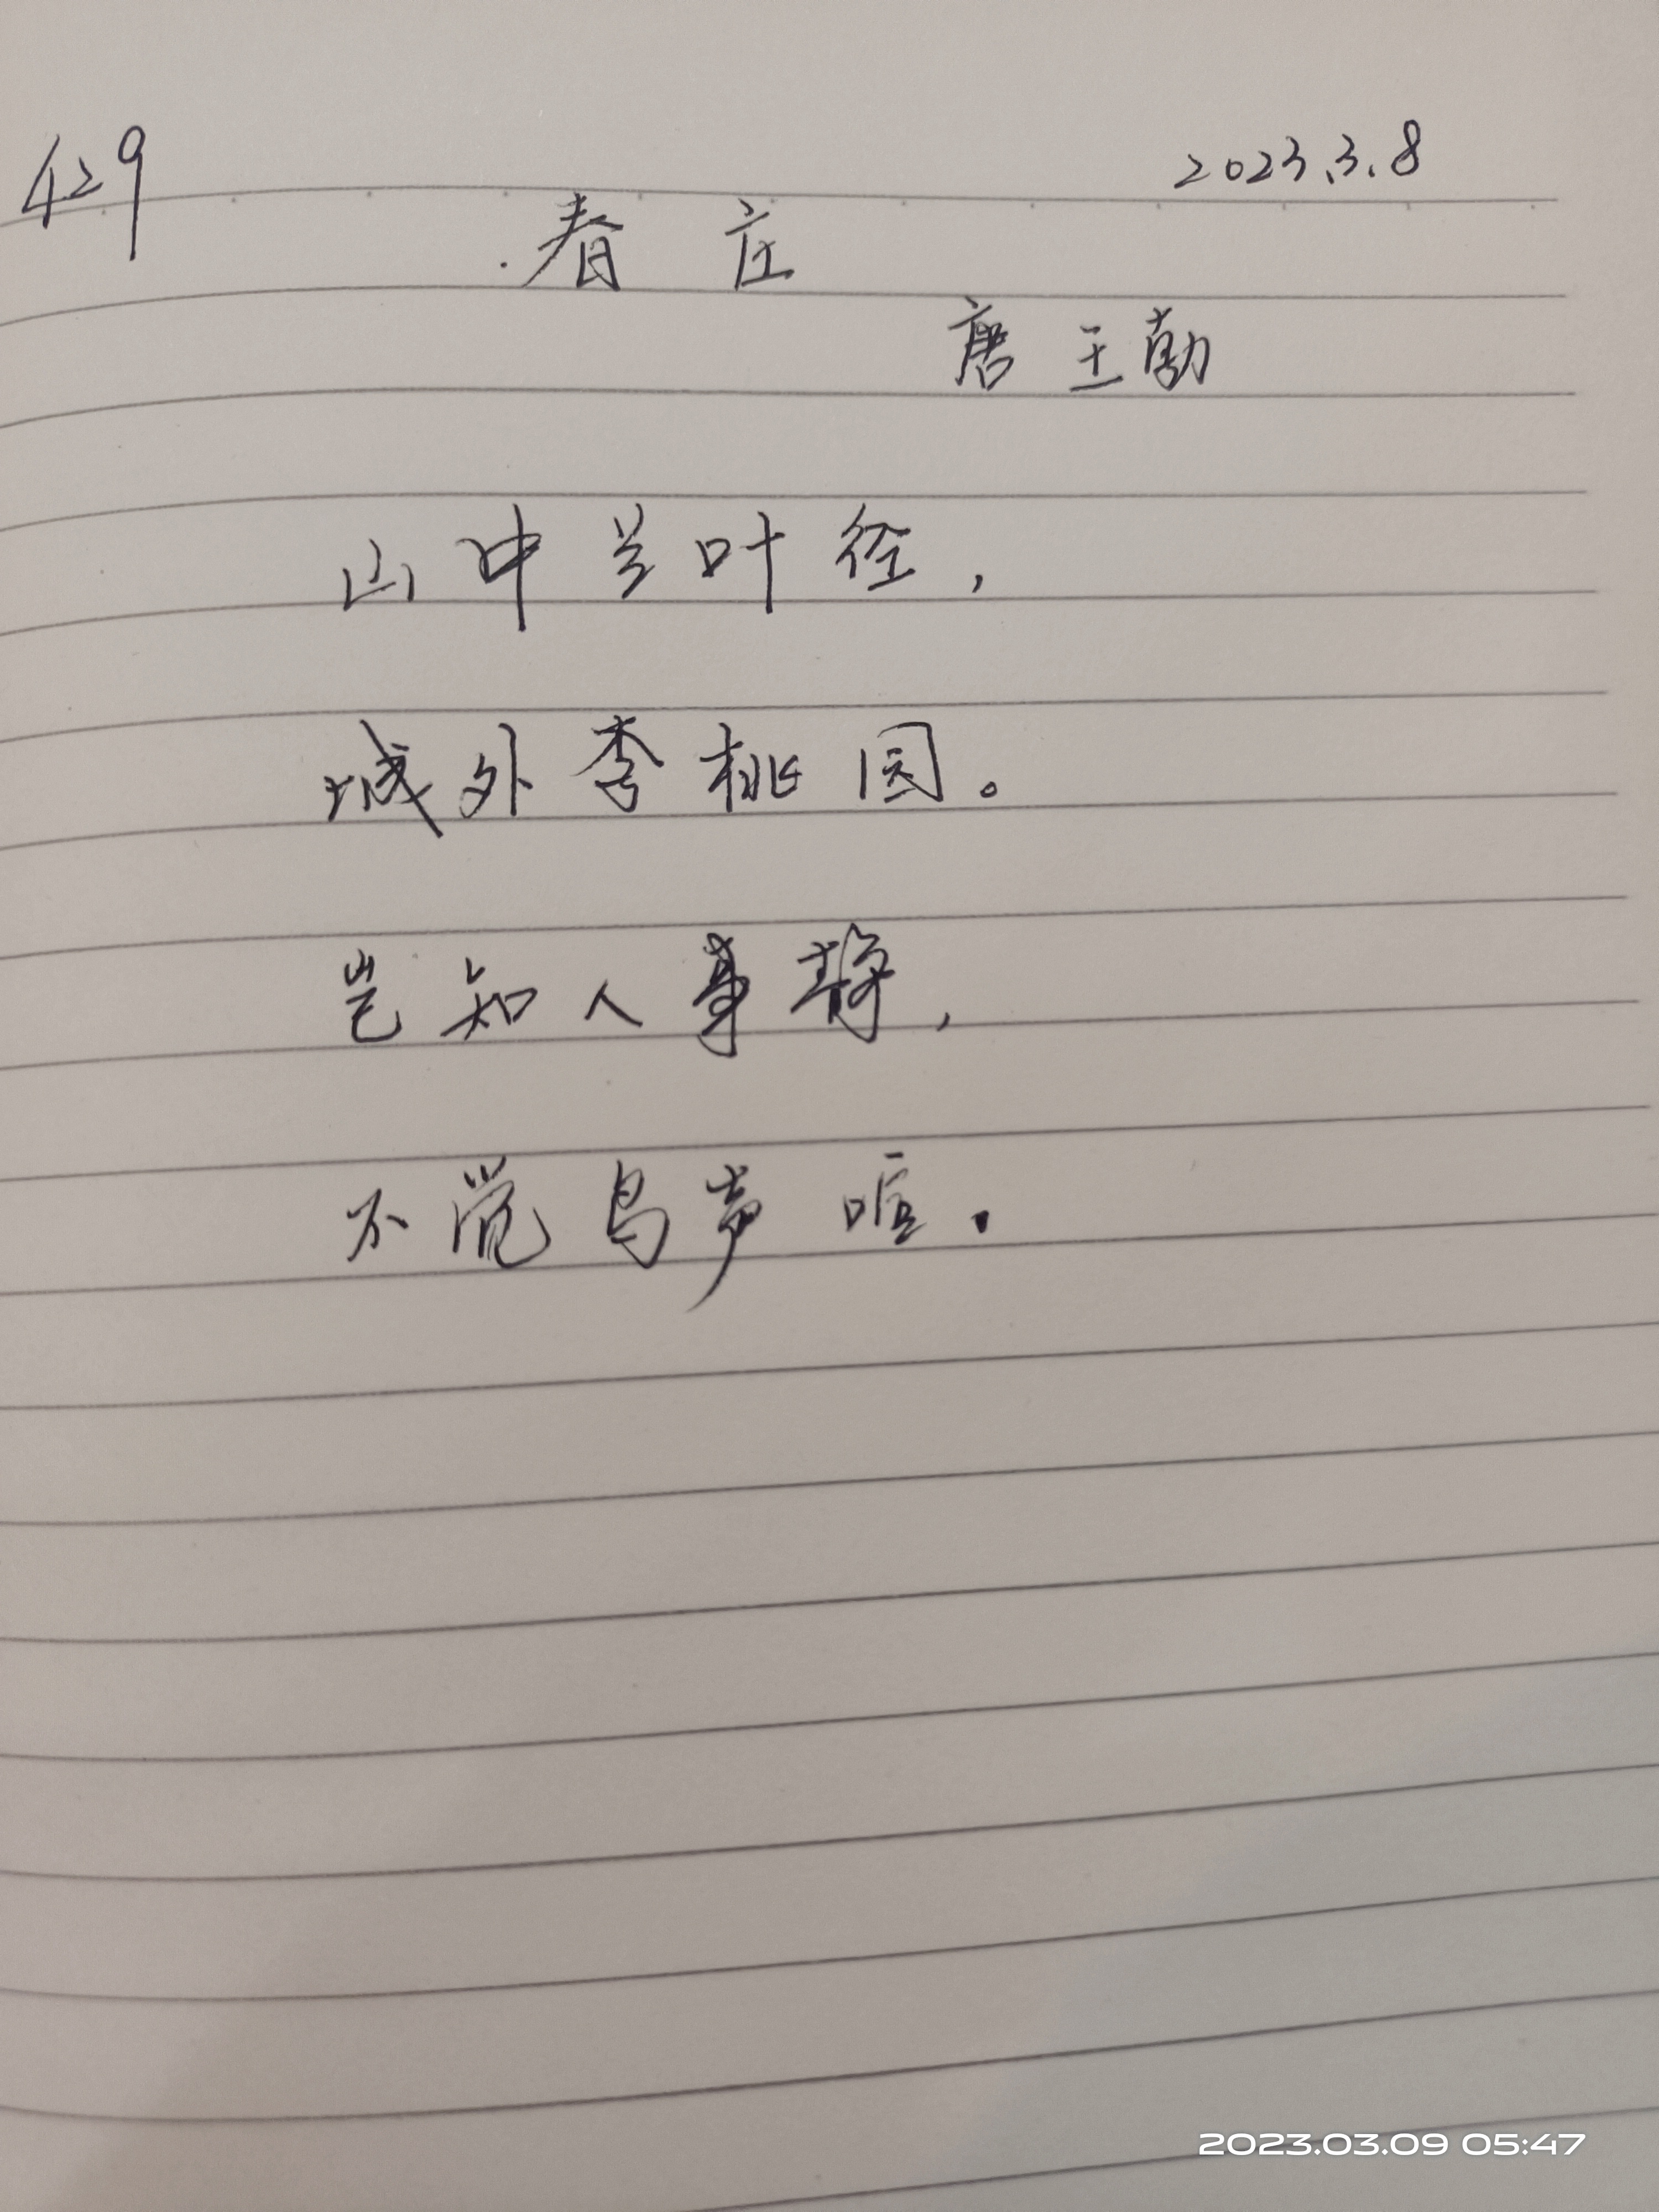 429
2023.3.8
春庄
唐 王勃
山中兰叶径，
城外李桃园。
岂知人事静，
不觉鸟声喧。
2023.03.09 05:47